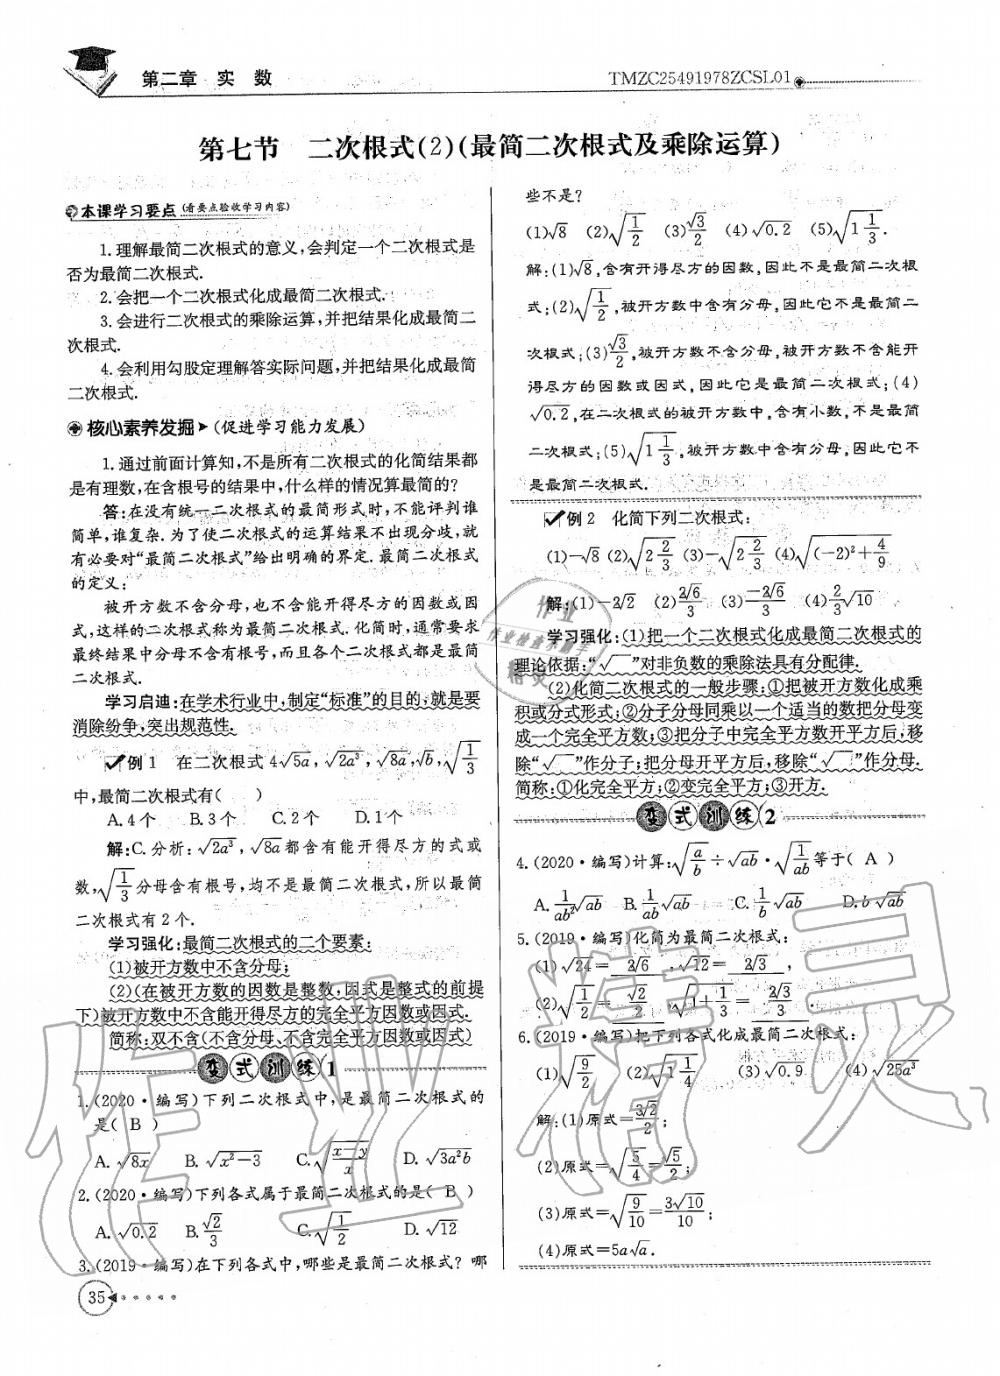 第二章 实 数
TMZC25491978ZCSL01
第七节 二次根式(2)(最简二次根式及乘除运算)
本课学习要点(看要点验收学习内容)
1. 理解最简二次根式的意义,会判定一个二次根式是
否为最简二次根式.
2. 会把一个二次根式化成最简二次根式.
3. 会进行二次根式的乘除运算,并把结果化成最简二
次根式.
4. 会利用勾股定理解答实际问题,并把结果化成最简
二次根式.
核心素养发掘➤(促进学习能力发展)
1. 通过前面计算知,不是所有二次根式的化简结果都
是有理数,在含根号的结果中,什么样的情况算最简的?
答:在没有统一二次根式的最简形式时,不能评判谁
简单,谁复杂. 为了使二次根式的运算结果不出现分歧,就
有必要对“最简二次根式”给出明确的界定. 最简二次根式
的定义:
被开方数不含分母,也不含能开得尽方的因数或因
式,这样的二次根式称为最简二次根式. 化简时,通常要求
最终结果中分母不含有根号,而且各个二次根式都是最简
二次根式.
学习启迪:在学术行业中,制定“标准”的目的,就是要
消除纷争,突出规范性.
例 1 在二次根式 4√5a, √2a³, √8a, √b, √(1/3)
中,最简二次根式有( )
A. 4 个 B. 3 个 C. 2 个 D. 1 个
解:C. 分析:√2a³, √8a 都含有能开得尽方的式或
数, √(1/3) 分母含有根号,均不是最简二次根式,所以最简
二次根式有 2 个.
学习强化:最简二次根式的二个要素:
(1)被开方数中不含分母;
(2)(在被开方数的因数是整数,因式是整式的前提
下)被开方数中不含能开得尽方的完全平方因数或因式.
简称:双不含(不含分母、不含完全平方因数或因式)
变式训练 1
1. (2020·编写)下列二次根式中,是最简二次根式的
是( B )
A. √8x B. √(x²-3) C. √((x-y)/x) D. √3a²b
2. (2020·编写)下列各式属于最简二次根式的是( B )
A. √0.2 B. √2/3 C. √(1/2) D. √12
3. (2019·编写)在下列各式中,哪些是最简二次根式? 哪
35
些不是?
(1)√8 (2)√(1/2) (3)√3/2 (4)√0.2 (5)√(1 1/3).
解:(1)√8,含有开得尽方的因数,因此不是最简二次根
式;(2)√(1/2),被开方数中含有分母,因此它不是最简二
次根式;(3)√3/2,被开方数不含分母,被开方数不含能开
得尽方的因数或因式,因此它是最简二次根式;(4)
√0.2,在二次根式的被开方数中,含有小数,不是最简
二次根式;(5)√(1 1/3),被开方数中含有分母,因此它不
是最简二次根式.
例 2 化简下列二次根式:
(1)-√8 (2)√(2 2/3) (3)-√(2 2/3) (4)√((-2)²+4/9)
解:(1)-2√2 (2)2√6/3 (3)-2√6/3 (4)2/3√10
学习强化:(1)把一个二次根式化成最简二次根式的
理论依据:“√ ”对非负数的乘除法具有分配律.
(2)化简二次根式的一般步骤:①把被开方数化成乘
积或分式形式;②分子分母同乘以一个适当的数把分母变
成一个完全平方数;③把分子中完全平方数开平方后,移
除“√ ”作分子;把分母开平方后,移除“√ ”作分母.
简称:①化完全平方;②变完全平方;③开方.
变式训练 2
4. (2020·编写)计算:√(a/b)÷√ab·√(1/ab)等于( A )
A. 1/(ab²)√ab B. 1/(ab)√ab C. 1/b√ab D. b√ab
5. (2019·编写)化简为最简二次根式:
(1)√24= 2√6 ,√12= 2√3 ,
(2)√(1/2)= √2/2 √(1+1/3)= 2√3/3 .
6. (2019·编写)把下列各式化成最简二次根式:
(1)√(9/2) (2)√(1 1/4) (3)√0.9 (4)√25a³
解:(1)原式=3√2/2;
(2)原式=√(5/4)=√5/2;
(3)原式=√(9/10)=3√10/10;
(4)原式=5a√a.
作业
作业检查小助手
精灵
作业精灵